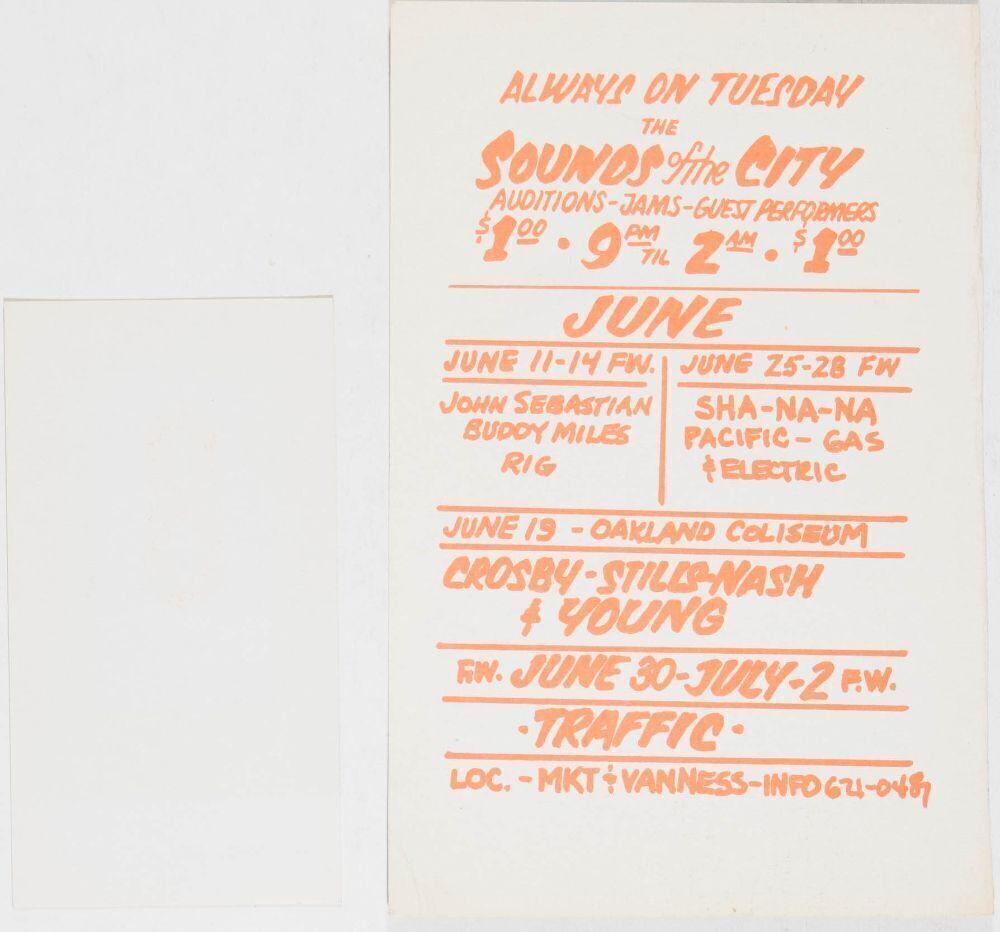 ALWAYS ON TUESDAY
THE
SOUNDS of the CITY
AUDITIONS-JAMS-GUEST PERFORMERS
$1.00 · 9 PM TIL 2 AM · $1.00
JUNE
JUNE 11-14 FW.
JOHN SEBASTIAN
BUDDY MILES
RIG
JUNE 25-28 FW
SHA-NA-NA
PACIFIC - GAS
& ELECTRIC
JUNE 19 - OAKLAND COLISEUM
CROSBY-STILLS-NASH
& YOUNG
F.W. JUNE 30-JULY-2 F.W.
·TRAFFIC·
LOC. - MKT & VANNESS-INFO 621-0487